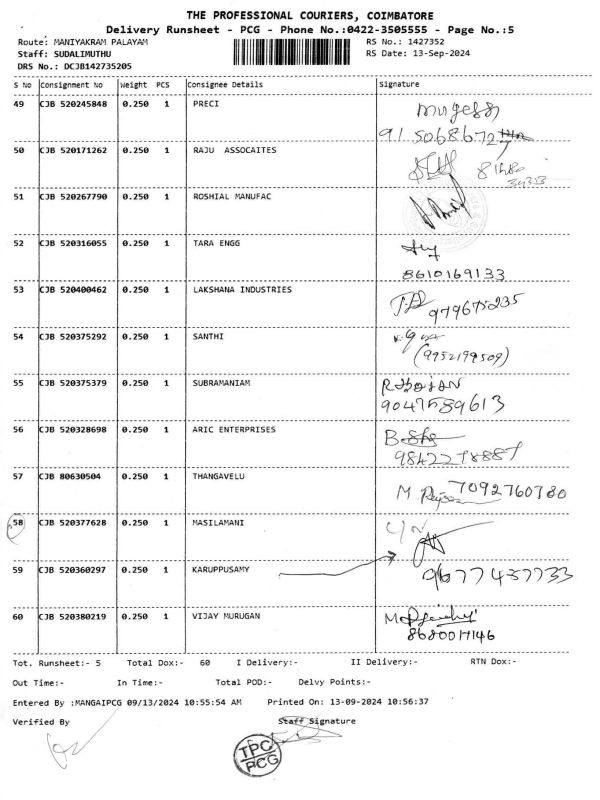 THE PROFESSIONAL COURIERS, COIMBATORE
Delivery Runsheet - PCG - Phone No.:0422-3505555 - Page No.:5
Route: MANIYAKRAM PALAYAM RS No.: 1427352
Staff: SUDALIMUTHU RS Date: 13-Sep-2024
DRS No.: DCJB142735205
S No Consignment No Weight PCS Consignee Details Signature
49 CJB 520245848 0.250 1 PRECI
50 CJB 520171262 0.250 1 RAJU ASSOCAITES
51 CJB 520267790 0.250 1 ROSHIAL MANUFAC
52 CJB 520316055 0.250 1 TARA ENGG
8610169133
53 CJB 520400462 0.250 1 LAKSHANA INDUSTRIES
979675235
54 CJB 520375292 0.250 1 SANTHI
(9952199509)
55 CJB 520375379 0.250 1 SUBRAMANIAM
9047589613
56 CJB 520328698 0.250 1 ARIC ENTERPRISES
9842278887
57 CJB 80630504 0.250 1 THANGAVELU
7092760780
58 CJB 520377628 0.250 1 MASILAMANI
59 CJB 520360297 0.250 1 KARUPPUSAMY
9677437733
60 CJB 520380219 0.250 1 VIJAY MURUGAN
8680017146
Tot. Runsheet:- 5 Total Dox:- 60 I Delivery:- II Delivery:- RTN Dox:-
Out Time:- In Time:- Total POD:- Delvy Points:-
Entered By :MANGAIPCG 09/13/2024 10:55:54 AM Printed On: 13-09-2024 10:56:37
Verified By Staff Signature
TPC
PCG